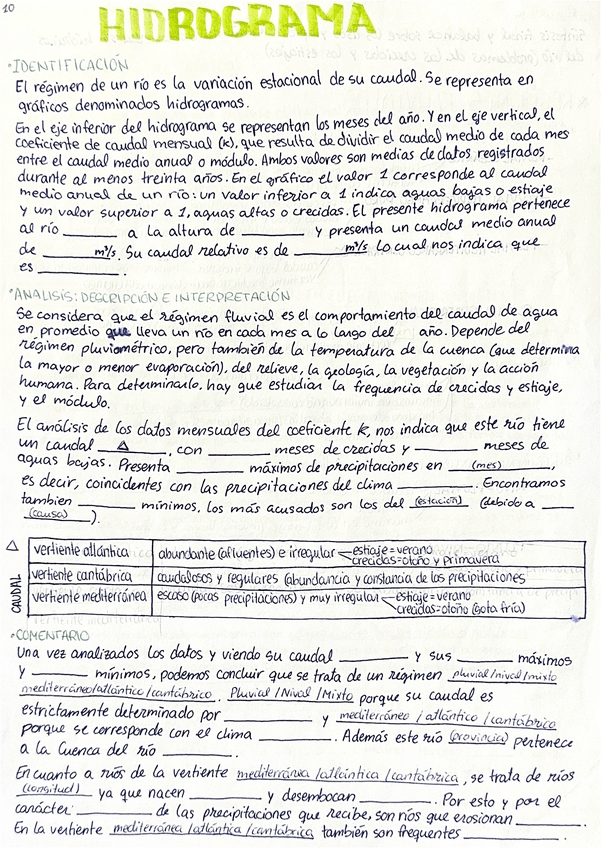 10
HIDROGRAMA
•IDENTIFICACIÓN
El régimen de un río es la variación estacional de su caudal. Se representa en
gráficos denominados hidrogramas.
En el eje inferior del hidrograma se representan los meses del año. Y en el eje vertical, el
coeficiente de caudal mensual (k), que resulta de dividir el caudal medio de cada mes
entre el caudal medio anual o módulo. Ambos valores son medias de datos registrados
durante al menos treinta años. En el gráfico el valor 1 corresponde al caudal
medio anual de un río: un valor inferior a 1 indica aguas bajas o estiaje
y un valor superior a 1, aguas altas o crecidas. El presente hidrograma pertenece
al río ________ a la altura de ________ y presenta un caudal medio anual
de ________ m³/s. Su caudal relativo es de ________ m³/s. Lo cual nos indica que
es ________.
•ANALISIS: DESCRIPCIÓN E INTERPRETACIÓN
Se considera que el régimen fluvial es el comportamiento del caudal de agua
en promedio que lleva un río en cada mes a lo largo del año. Depende del
régimen pluviométrico, pero también de la temperatura de la cuenca (que determina
la mayor o menor evaporación), del relieve, la geología, la vegetación y la acción
humana. Para determinarlo, hay que estudiar la frecuencia de crecidas y estiaje,
y el módulo.
El análisis de los datos mensuales del coeficiente k, nos indica que este río tiene
un caudal ___△___, con ________ meses de crecidas y ________ meses de
aguas bajas. Presenta ________ máximos de precipitaciones en (mes),
es decir, coincidentes con las precipitaciones del clima ________. Encontramos
tambien ________ mínimos, los más acusados son los del (estación) (debido a
(causa) ).
△
CAUDAL
vertiente atlántica abundante (afluentes) e irregular estiaje = verano
crecidas = otoño y primavera
vertiente cantábrica caudalosos y regulares (abundancia y constancia de las precipitaciones
vertiente mediterránea escaso (pocas precipitaciones) y muy irregular estiaje = verano
crecidas = otoño (gota fría)
•COMENTARIO
Una vez analizados los datos y viendo su caudal ________ y sus ________ máximos
y ________ mínimos, podemos concluir que se trata de un régimen pluvial/nival/mixto
mediterráneo/atlántico/cantábrico. Pluvial/Nival/Mixto porque su caudal es
estrictamente determinado por ________ y mediterráneo / atlántico / cantábrico
porque se corresponde con el clima ________. Además este río (provincia) pertenece
a la Cuenca del río ________.
En cuanto a ríos de la vertiente mediterránea /atlántica /cantábrica, se trata de ríos
(longitud) ya que nacen ________ y desembocan ________. Por esto y por el
carácter ________ de las precipitaciones que recibe, son ríos que erosionan ________.
En la vertiente mediterránea /atlántica /cantábrica también son frecuentes ________.